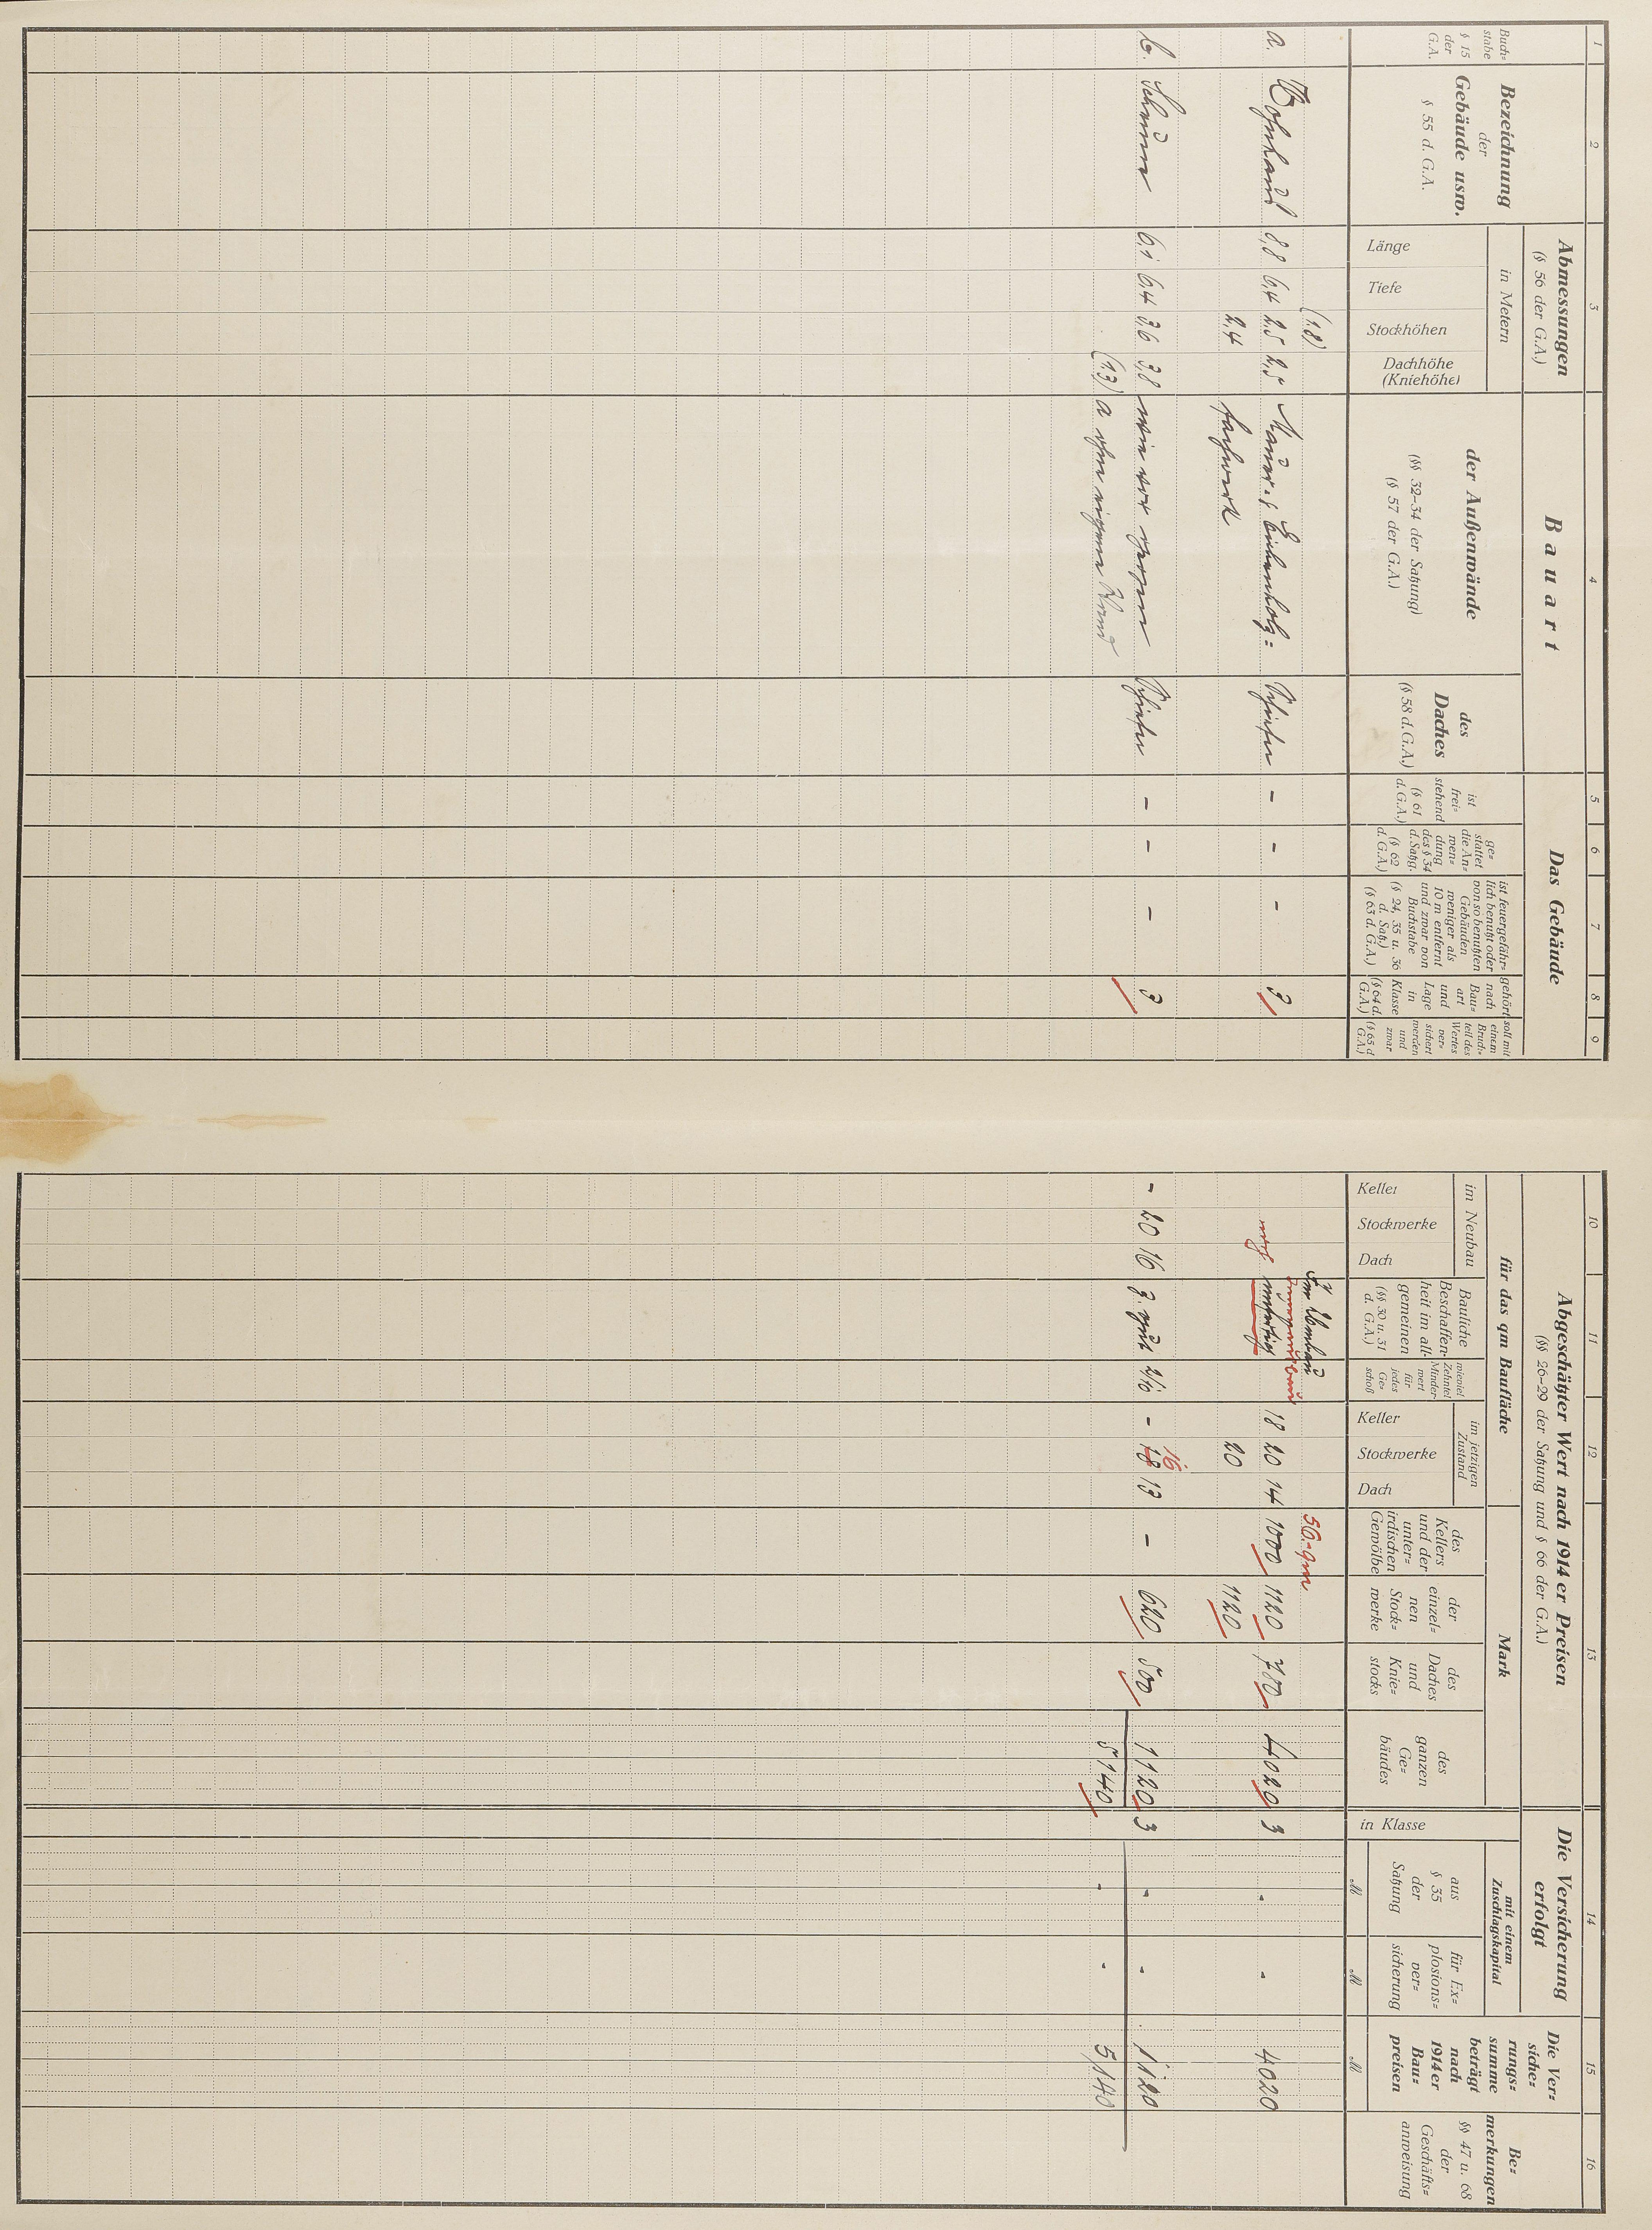 1 2 3 4 5 6 7 8 9
Buch=
stabe
§ 15
der
G.A.
Bezeichnung
der
Gebäude usw.
§ 55 d. G.A.
Abmessungen
(§ 56 der G.A.)
in Metern
Länge
Tiefe
Stockhöhen
Dachhöhe
(Kniehöhe)
Bauart
der Außenwände
(§§ 32–34 der Satzung)
(§ 57 der G.A.)
des
Daches
(§ 58 d. G.A.)
Das Gebäude
ist
frei=
stehend
(§ 61
d. G.A.)
ge=
stattet
die An=
wen=
dung
des § 34
d. Satzg.
(§ 62
d. G.A.)
ist feuergefähr=
lich benutzt oder
von so benutzten
Gebäuden
weniger als
10 m entfernt
und zwar von
Buchstabe
(§ 24, 35 u. 36
d. Satz.)
(§ 63 d. G.A.)
gehört
nach
Bau=
art
und
Lage
in
Klasse
(§ 64 d.
G.A.)
soll mit
einem
Bruch=
teil des
Wertes
ver=
sichert
werden
und
zwar
(§ 65 d
G.A.)
(1,8)
a. Wohnhaus 8,8 6,4 2,5 2,5 Mauer-, Eichenholz= Schiefer - - - 3
2,4 fachwerk
b. Scheune 6,1 6,4 3,6 3,8 wie vor gegen Schiefer - - - 3
(1,3) a ohne eigene Wand
10 11 12 13 14 15 16
Abgeschätzter Wert nach 1914 er Preisen
(§§ 26–29 der Satzung und § 66 der G.A.)
für das qm Baufläche
im Neubau
Keller
Stockwerke
Dach
Bauliche
Beschaffen=
heit im all=
gemeinen
(§§ 30 u. 31
d. G.A.)
wieviel
Zehntel
Minder=
wert
für
jedes
Ge=
schoß
im jetzigen
Zustand
Keller
Stockwerke
Dach
Mark
des
Kellers
und der
unter=
irdischen
Gewölbe
der
einzel=
nen
Stock=
werke
des
Daches
und
Knie=
stocks
des
ganzen
Ge=
bäudes
Die Versicherung
erfolgt
in Klasse
mit einem
Zuschlagskapital
aus
§ 35
der
Satzung
für Ex=
plosions=
ver=
sicherung
M
M
Die Ver=
siche=
rungs=
summe
beträgt
nach
1914 er
Bau=
preisen
M
Be=
merkungen
§§ 47 u. 68
der
Geschäfts=
anweisung
Im Umbau 56.-qm
noch unfertig 18 20 14 1000 1120 780 4020 3 - - 4020
20 1120
16
- 20 16 3. gut 2/10 - 18 13 - 620 500 1120 3 - - 1120
5140 - - 5140